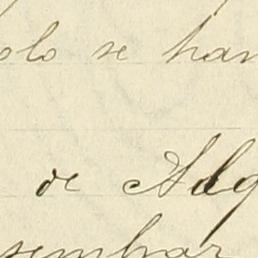 olo se han
de Alg
sembrar